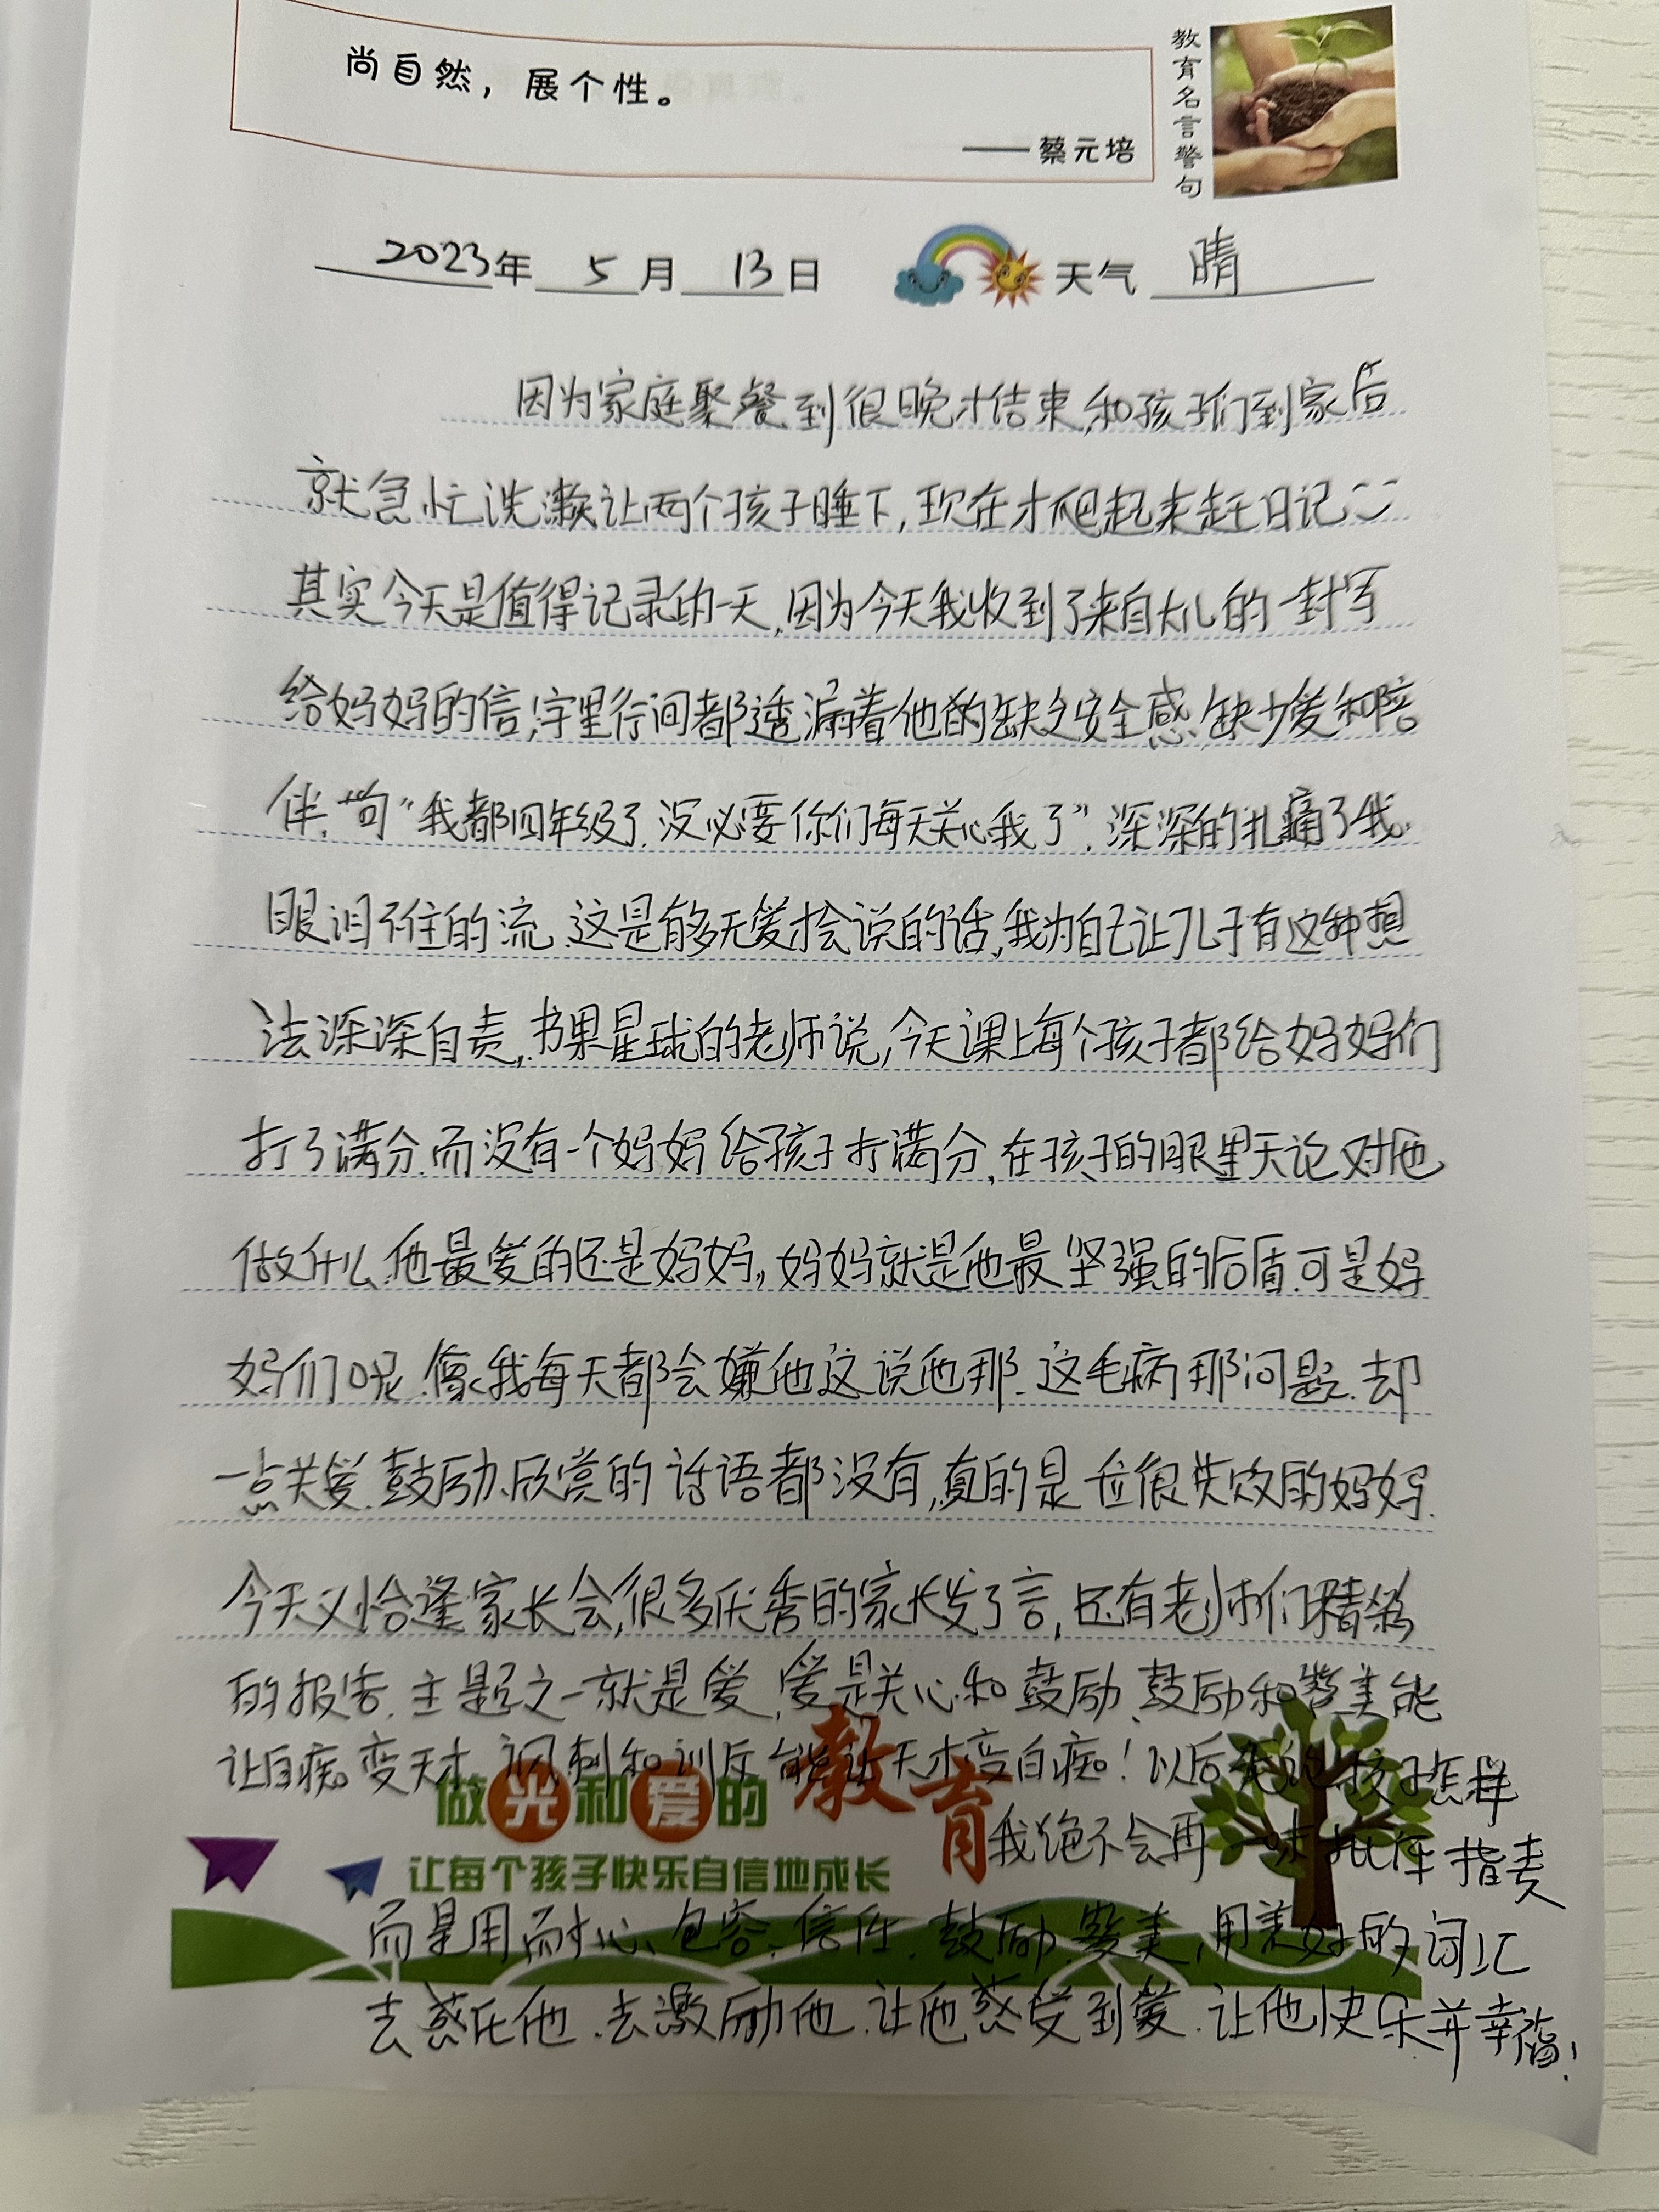 尚自然，展个性。
——蔡元培
教育名言警句
2023年 5 月 13 日 天气 晴
因为家庭聚餐到很晚才结束,和孩子们到家后
就急忙洗漱让两个孩子睡下,现在才爬起来赶日记
其实今天是值得记录的一天,因为今天我收到了来自大儿的一封写
给妈妈的信,字里行间都透漏着他的缺乏安全感、缺少爱和陪
伴,一句“我都四年级了,没必要你们每天关心我了”,深深的扎痛了我,
眼泪不住的流,这是有多无爱才会说的话,我为自己让儿子有这种想
法深深自责,书果星球的老师说,今天课上每个孩子都给妈妈们
打了满分,而没有一个妈妈给孩子打满分,在孩子的眼里无论对他
做什么,他最爱的还是妈妈,妈妈就是他最坚强的后盾,可是妈
妈们呢,像我每天都会嫌他这说他那,这毛病那问题,却
一点关爱、鼓励、欣赏的话语都没有,真的是一位很失败的妈妈.
今天又恰逢家长会,很多优秀的家长发了言,还有老师们精彩
的报告,主题之一就是爱,爱是关心和鼓励,鼓励和赞美能
让白痴变天才,讽刺和训斥能让天才变白痴!以后无论孩子怎样
做光和爱的教育
我绝不会再一味批斥指责
让每个孩子快乐自信地成长
而是用耐心、包容、信任、鼓励、赞美,用美好的词汇
去感化他,去激励他,让他感受到爱,让他快乐并幸福!